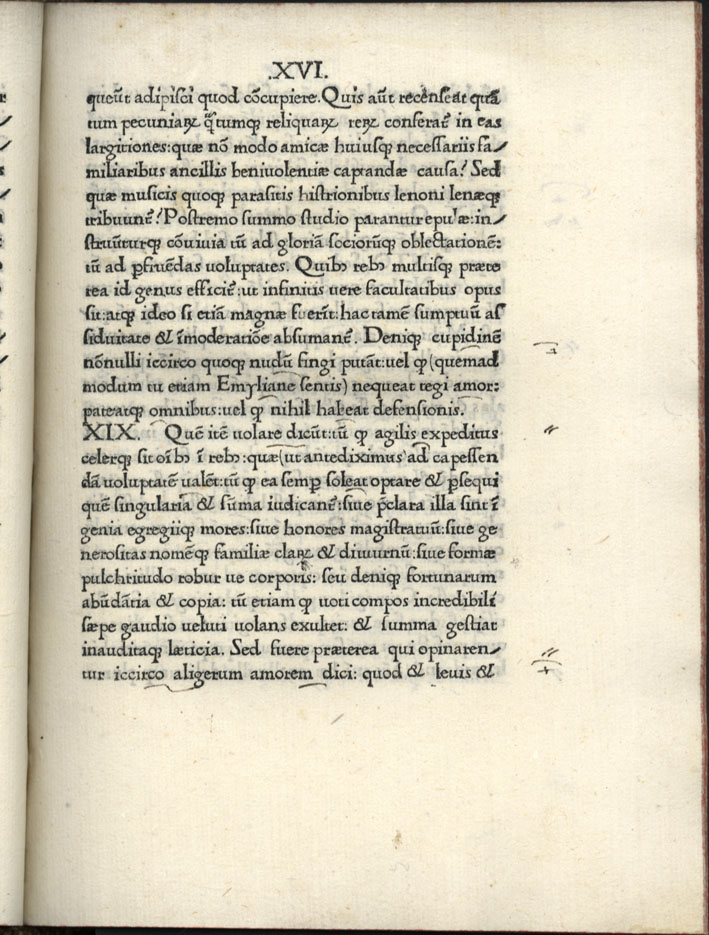 .XVI.
queūt adipisci quod cōcupiere. Quis aūt recēnseat quā
tum pecuniaꝝ q̄tumqꝫ reliquaꝝ reꝝ conferat̄ in eas
largitiones: quæ nō modo amicæ huiusqꝫ necessariis fa⸗
miliaribus ancillis beniuolentiæ captandæ causa? Sed
quæ musicis quoqꝫ parasitis histrionibus lenoni lenæqꝫ
tribuunt̄? Postremo summo studio parantur epulæ: in⸗
struūturqꝫ cōuiuia tū ad gloriā sociorūqꝫ oblectationē:
tū ad ꝑfruēdas uoluptates. Quibꝫ rebꝫ multisqꝫ præte
rea id genus efficit̄: ut infinitis uere facultatibus opus
sit: atqꝫ ideo si etiā magnæ fuerīt: hac tamē sumptuū as
siduitate & īmoderatiōe absumant̄. Deniqꝫ cupidinē
nōnulli iccirco quoqꝫ nudū fingi putāt: uel qꝫ (quemad
modum tu etiam Emyliane sentis) nequeat tegi amor:
pateatqꝫ omnibus: uel qꝫ nihil habeat defensionis.
XIX. Quē itē uolare dicūt: tū qꝫ agilis expeditus
celerqꝫ sit oībꝫ ī rebꝫ: quæ (ut antediximus) ad capessen
dā uoluptatē ualēt: tū qꝫ ea semꝑ soleat optare & ꝑsequi
quē singularia & sūma iudicant̄: siue p̄clara illa sint ī
genia egregiiqꝫ mores: siue honores magistratuū: siue ge
nerositas nomēqꝫ familiæ claꝝ & diuturnū: siue formæ
pulchritudo robur ue corporis: seu deniqꝫ fortunarum
abūdātia & copia: tū etiam qꝫ uoti compos incredibili
sæpe gaudio ueluti uolans exultet: & summa gestiat
inauditaqꝫ læticia. Sed fuere præterea qui opinaren⸗
tur iccirco aligerum amorem dici: quod & leuis &